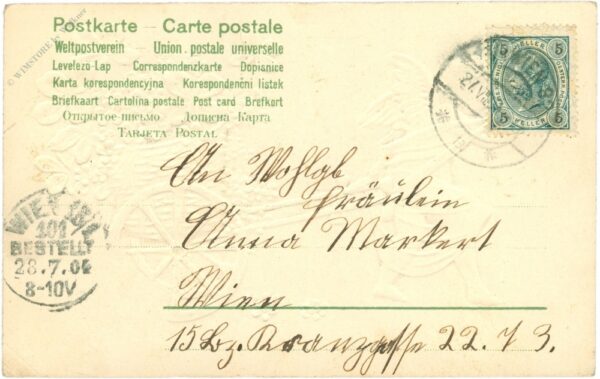 Postkarte - Carte postale
Weltpostverein - Union postale universelle
Levelező-Lap - Correspondenzkarte Dopisnice
Karta korespondencyjna Korespondenční listek
Briefkaart Cartolina postale Post card Brefkort
Открытое письмо Дописна Карта
TARJETA POSTAL
5 HELLER 5
5 HELLER 5
WIEN
27.VII
An Wohlgb
Fräulein
Anna Markert
Wien
15 Bz. Kranzgasse 22. T 3.
WIEN
101
BESTELLT
28.7.06
8-10V
© WIMSTORE